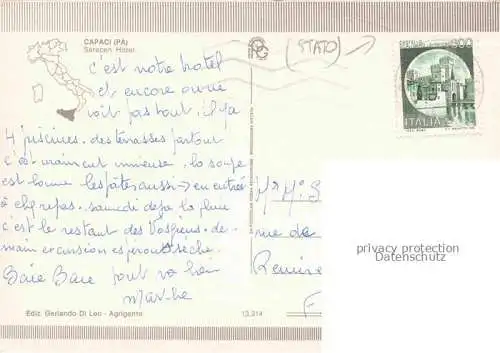 CAPACI (PA)
Saracen Hotel
(STATO)
300
ITALIA
c'est notre hotel
et encore on ne
voit pas tout, il y a
4 piscines. des terrasses partout
c'est vraiment immense, la soupe
est bonne les pâtes aussi → en entrée
à chq repas. samedi deja la pluie
c'est le restant des Vosgiens. de-
main excursion espérons sèche.
Baie Baie tout va bien
Marthe
Mr Mme S
rue de
Remire
F
Ediz. Gerlando Di Leo - Agrigento
13.314
privacy protection
Datenschutz